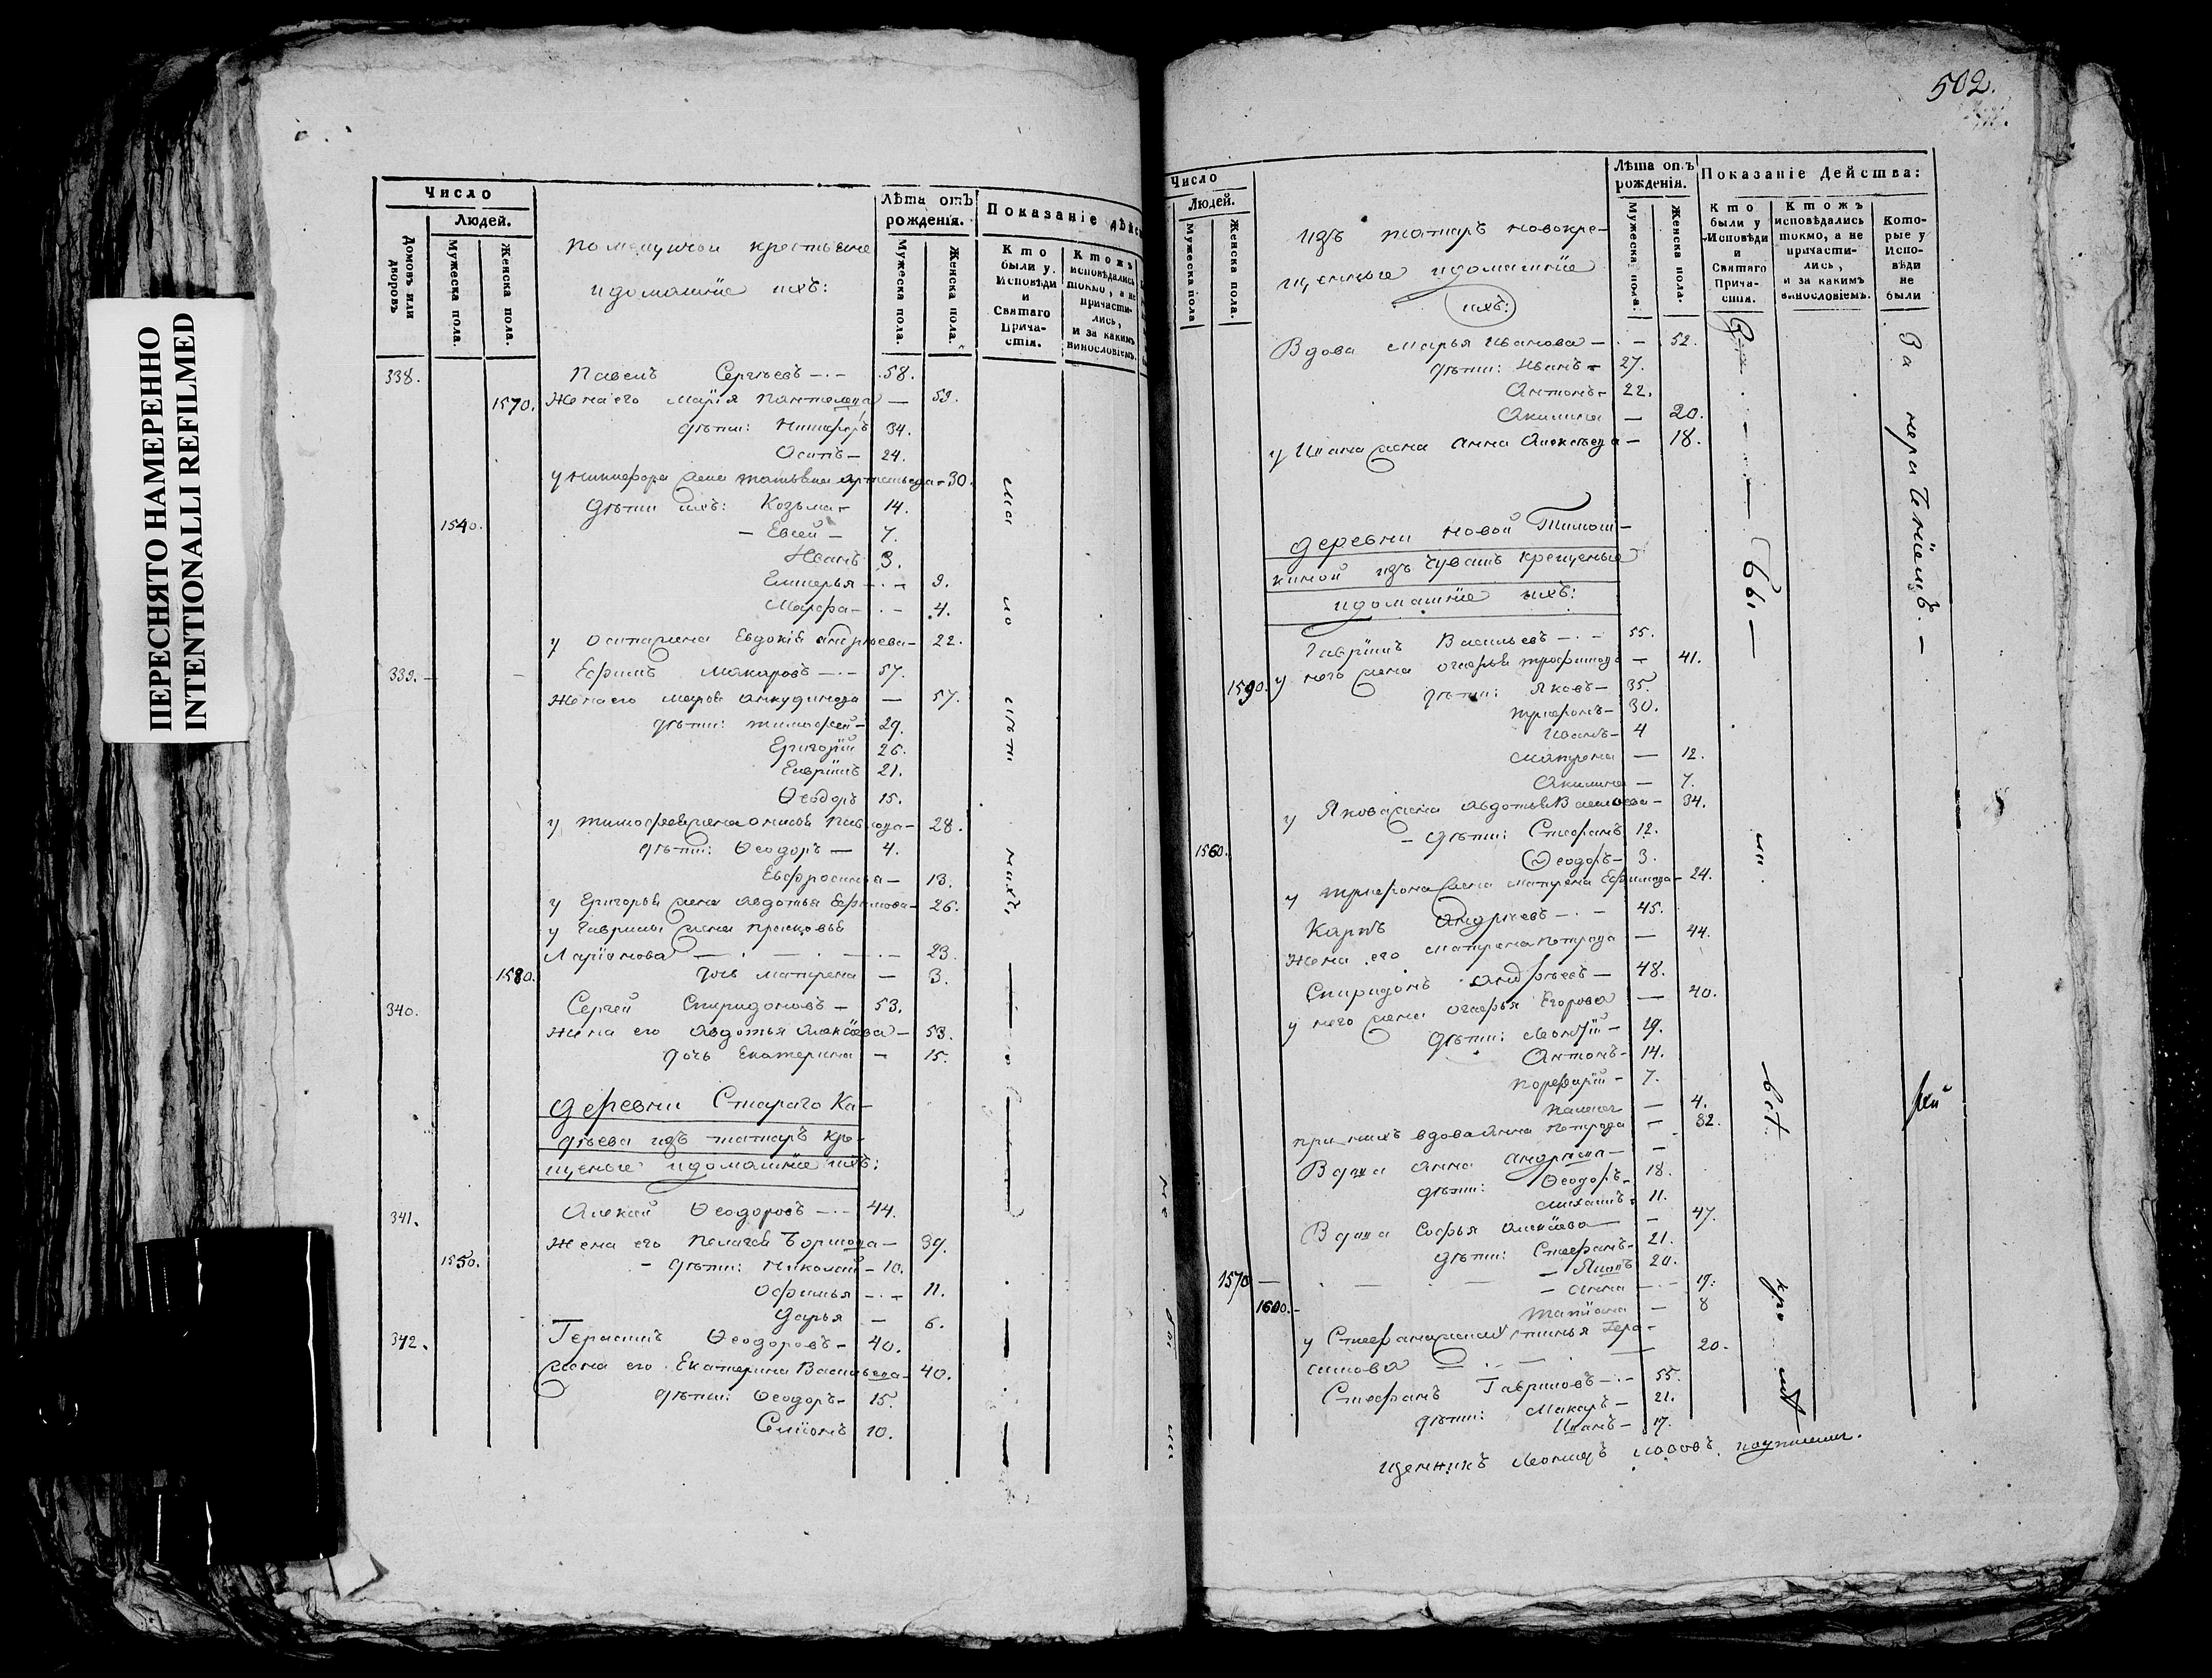 ПЕРЕСНЯТО НАМЕРЕННО
INTENTIONALLI REFILMED
Число
Людей.
Домовъ или дворовъ
Мужеска пола.
Женска пола.
помещичьи крестьяне
и домашніе ихъ:
Лѣта отъ рожденія.
Мужеска пола.
Женска пола.
Показаніе
Кто были у Исповѣди и Святаго Причастія.
Ктожъ исповѣдались токмо, а не причастились, и за какимъ винословіемъ.
338. Павелъ Сергѣевъ 58.
1570. Жена его Марія 53.
дѣти: Никифоръ 34.
Осипъ 24.
у Никифора жена Татьяна 30.
дѣти ихъ: Козьма 14.
1540. Евсей 7.
Иванъ 3.
9.
Марфа 4.
у Осипа жена Евдокія Андрѣева 22.
339. Ефимъ Макаровъ 57.
Жена его Марѳа Анкудинова 57.
дѣти: Тимофей 29.
Григорій 26.
Гаврилъ 21.
Ѳеодоръ 15.
у Тимофея жена 28.
дѣти: Ѳеодоръ 4.
Евфросинья 13.
у Григорья жена Авдотья Ефимова 26.
у Гаврилы жена Прасковья
Ларіонова 23.
1580. дочь Матрена 3.
340. Сергей Спиридоновъ 53.
Жена его Авдотья Алексѣева 53.
дочь Екатерина 15.
деревни Стараго Ка-
дѣева изъ татаръ кре-
щеные и домашніе ихъ:
341. Алексѣй Ѳеодоровъ 44.
Жена его Пелагея 39.
1550. дѣти: Николай 10.
Офимья 11.
Дарья 6.
342. Герасимъ Ѳеодоровъ 40.
жена его Екатерина Васильева 40.
дѣти: Ѳеодоръ 15.
Семіонъ 10.
502.
Число
Людей.
Мужеска пола
Женска пола.
изъ татаръ новокре-
щеные и домашніе
ихъ:
Лѣта отъ рожденія.
Мужеска пола.
Женска пола.
Показаніе Действа:
Кто были у Исповѣди и Святаго Причастія.
Ктожъ исповѣдались токмо, а не причастились, и за какимъ винословіемъ.
Которые у Исповѣди не были
Вдова Марья Иванова 52.
дѣти: Иванъ 27.
Антонъ 22.
Акилина 20.
у Ивана жена Анна Алексѣева 18.
За нераденіемъ.
деревни новой Тимош-
киной изъ чувашъ крещеные
и домашніе ихъ:
Гаврилъ Васильевъ 55.
1590. у него жена Трофимова 41.
дѣти: Яковъ 35.
Трифонъ 30.
Иванъ 4
Матрена 12.
Акилина 7.
у Якова жена Авдотья 34.
дѣти: Стефанъ 12.
1560. Ѳеодоръ 3.
у Трифона жена Матрена Ефимова 24.
Карпъ Андрѣевъ 45.
Жена его Матрена Петрова 44.
Спиридонъ Андрѣевъ 48.
у него жена Егорова 40.
дѣти: Леонтій 19.
Антонъ 14.
Порфирій 7.
4.
при нихъ вдова Анна Петрова 32.
Вдова Анна Андрѣева
дѣти: Ѳеодоръ 18.
Михаилъ 11.
Вдова Софья Алексѣева 47.
дѣти: Стефанъ 21.
20.
1570 Анна 19.
1600. Татіана 8
у Стефана жена Гера-
симова 20.
Стефанъ Гавриловъ 55.
дѣти: Макаръ 21.
Иванъ 17.